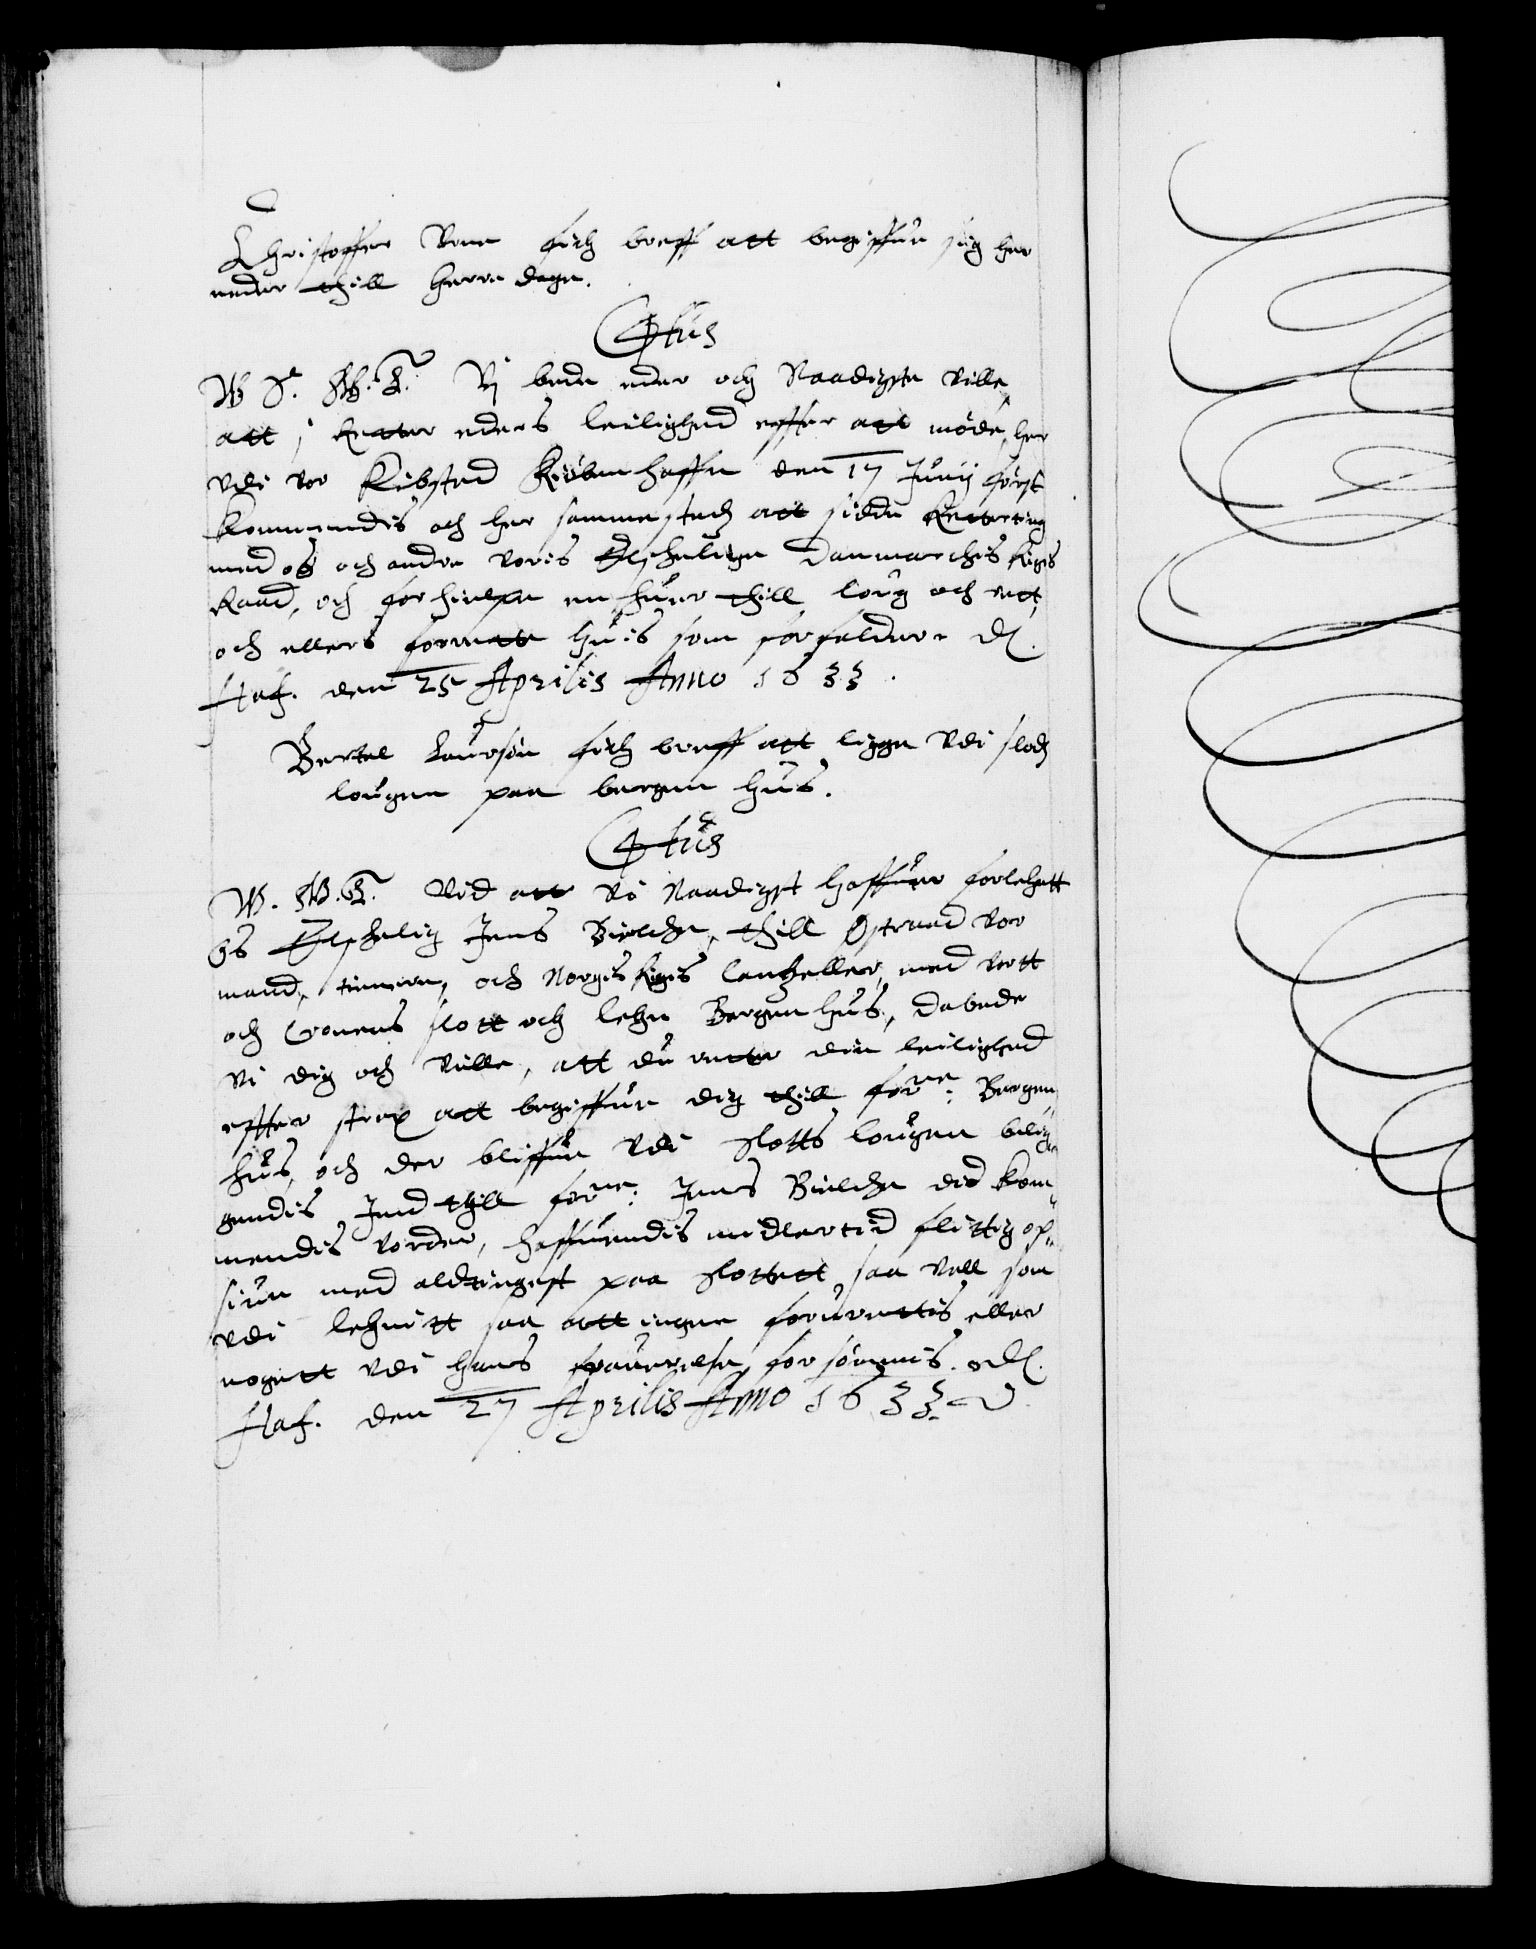 Christoffer Vrne fich breff att begiffue sig her
neder thill herre dage.
C4tus
W S. W.G.T. Vj bede eder och Naadigste ville,
att i retter eders leilighed effter att møde, her
vdi vor Kiøbsted Kiøbenhaffn den 17 Junij først
kommendis och her sammestedz att sidde Retterting
med os och andre voris Elschelige Danmarckis Rigis
Raad, och forhielpe en huer thill loug och rett,
och ellers forrette huis som forfalder. D[.
Haf. den 25 Aprilis Anno 1633.
Bertel Laursøn fich breff att ligge vdi slodz
lougen paa bergen hus.
C4tus
W. W.G.T. Vid att vi Naadigst haffuer forlehntt
Os Elschelig Jens Bielche, thill Østraad vor
mand, tienere, och Norgis Rigis Cantzeller, med vort
och Cronens slott och lehn Bergenhus, da bede
vi dig och ville, att du retter din leilighed
effter strax att begiffue dig thill forne: Bergen
hus, och der bliffue vdi Slotts lougen belig
gendis Ind thill forne: Jens Bielche did kom¬
mendis vorder, haffuendis midlertid flittig op¬
siun med aldtingest paa Slottett saa vell som
vdi lehnitt saa att ingen forurettis eller
nogett vdi hans frauerelse forsømmis. D[.
Haf. den 27 Aprilis Anno 1633.